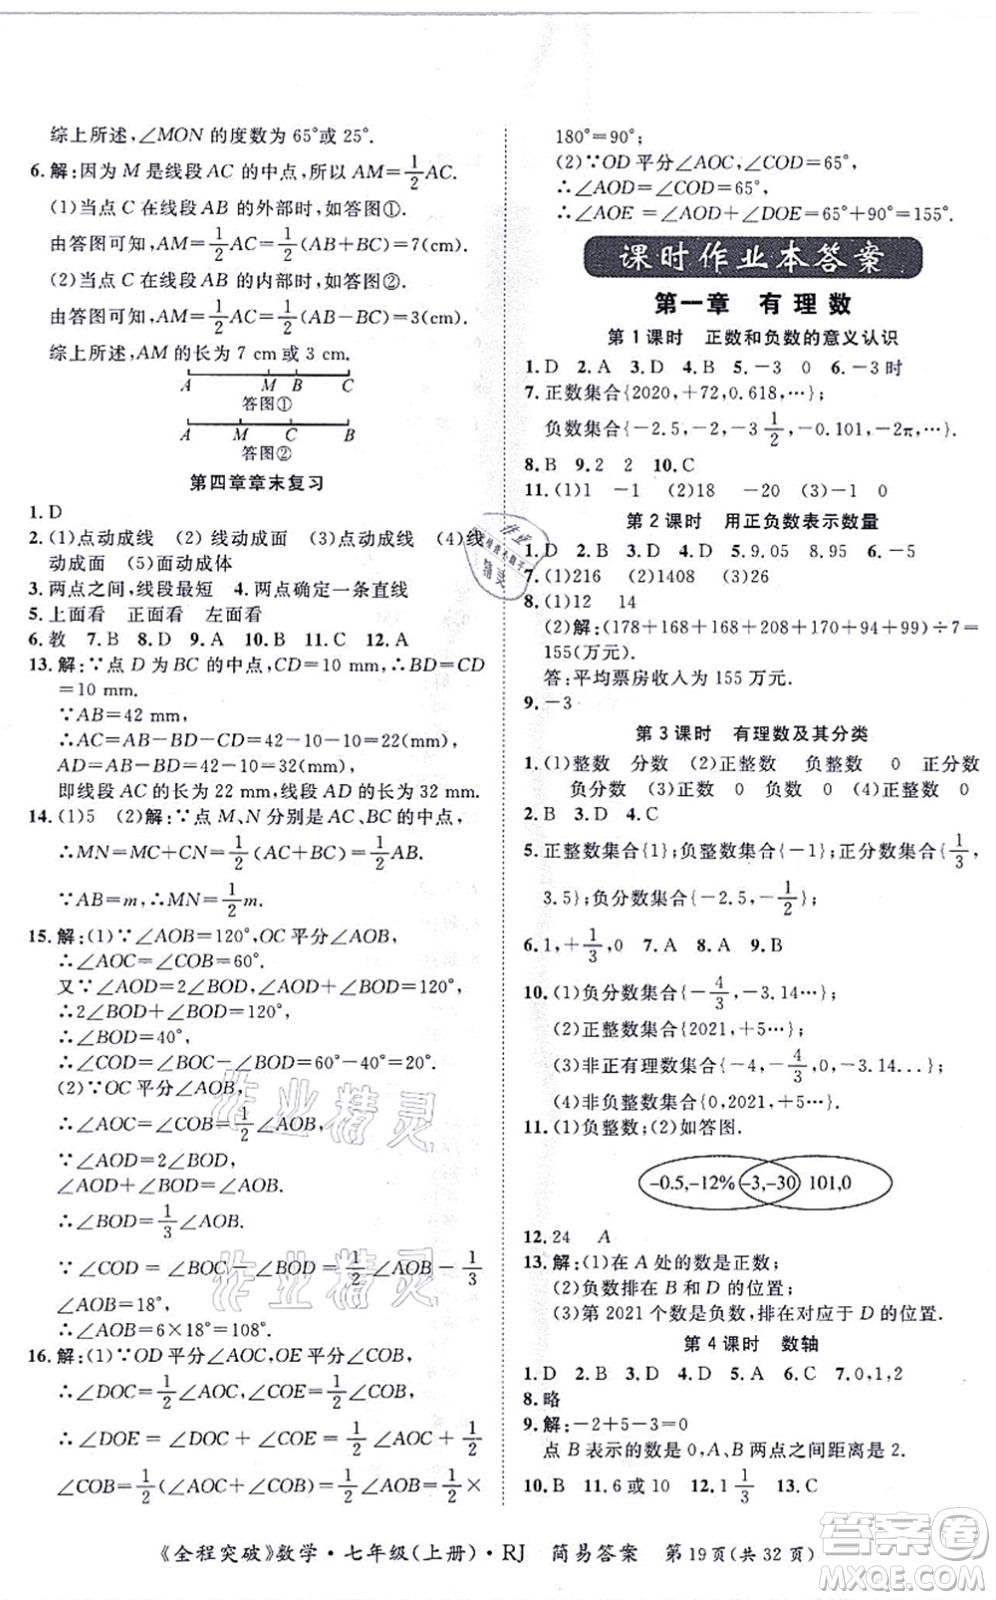 综上所述,∠MON 的度数为 65°或 25°.
6. 解:因为 M 是线段 AC 的中点,所以 AM=1/2AC.
(1)当点 C 在线段 AB 的外部时,如答图①.
由答图可知,AM=1/2AC=1/2(AB+BC)=7(cm)
(2)当点 C 在线段 AB 的内部时,如答图②.
由答图可知,AM=1/2AC=1/2(AB-BC)=3(cm)
综上所述,AM 的长为 7 cm 或 3 cm.
A M B C
答图①
A M C B
答图②
第四章章末复习
1. D
2. (1)点动成线 (2)线动成面 (3)点动成线 (4)线
动成面 (5)面动成体
3. 两点之间,线段最短 4. 两点确定一条直线
5. 上面看 正面看 左面看
6. 教 7. B 8. D 9. A 10. B 11. C 12. A
13. 解:∵点 D 为 BC 的中点,CD=10 mm,∴BD=CD
=10 mm.
∵AB=42 mm,
∴AC=AB-BD-CD=42-10-10=22(mm),
AD=AB-BD=42-10=32(mm),
即线段 AC 的长为 22 mm,线段 AD 的长为 32 mm.
14. (1)5 (2)解:∵点 M、N 分别是 AC、BC 的中点,
∴MN=MC+CN=1/2(AC+BC)=1/2AB.
∵AB=m,∴MN=1/2m.
15. 解:(1)∵∠AOB=120°,OC 平分∠AOB,
∴∠AOC=∠COB=60°.
又∵∠AOD=2∠BOD,∠AOD+∠BOD=120°,
∴2∠BOD+∠BOD=120°,
∴∠BOD=40°,
∴∠COD=∠BOC-∠BOD=60°-40°=20°.
(2)∵OC 平分∠AOB,
∴∠AOC=∠COB=1/2∠AOB,
∵∠AOD=2∠BOD,
∠AOD+∠BOD=∠AOB.
∴∠BOD=1/3∠AOB.
∵∠COD=∠BOC-∠BOD=1/2∠AOB-1/3
∠AOB=18°,
∴∠AOB=6×18°=108°.
16. 解:(1)∵OD 平分∠AOC,OE 平分∠COB,
∴∠DOC=1/2∠AOC,∠COE=1/2∠COB,
∴∠DOE=∠DOC+∠COE=1/2∠AOC+1/2
∠COB=1/2(∠AOC+∠COB)=1/2∠AOB=1/2×
180°=90°;
(2)∵OD 平分∠AOC,∠COD=65°,
∴∠AOD=∠COD=65°,
∴∠AOE=∠AOD+∠DOE=65°+90°=155°.
课时作业本答案
第一章 有理数
第 1 课时 正数和负数的意义认识
1. D 2. A 3. D 4. B 5. -3 0 6. -3 时
7. 正数集合{2020,+72,0.618,…};
负数集合{-2.5,-2,-3 1/2,-0.101,-2π,…}.
8. B 9. 2 2 10. C
11. (1)1 -1 (2)18 -20 (3)-1 0
第 2 课时 用正负数表示数量
1. D 2. B 3. D 4. D 5. 9.05 8.95 6. -5
7. (1)216 (2)1408 (3)26
8. (1)12 14
(2)解:(178+168+168+208+170+94+99)÷7=
155(万元).
答:平均票房收入为 155 万元.
9. -3
第 3 课时 有理数及其分类
1. (1)整数 分数 (2)正整数 负整数 0 正分数
负分数 (3)正分数 0 负分数 (4)正整数 0
2. B 3. D 4. C
5. 正整数集合{1};负整数集合{-1};正分数集合{1/3,
3.5};负分数集合{-2.5,-1/2};
6. 1,+1/3,0 7. A 8. A 9. B
10. (1)负分数集合{-4/3,-3.14…};
(2)正整数集合{2021,+5…};
(3)非正有理数集合{-4,-4/3,0,-3.14…};
(4)非负整数集合{0,2021,+5…}
11. (1)负整数;(2)如答图.
-0.5,-12% -3,-30 101,0
12. 24 A
13. 解:(1)在 A 处的数是正数;
(2)负数排在 B 和 D 的位置;
(3)第 2021 个数是负数,排在对应于 D 的位置.
第 4 课时 数轴
1. D 2. D 3. B 4. D 5. D 6. C 7. 0,1,2
8. 略
9. 解:-2+5-3=0
点 B 表示的数是 0,A、B 两点之间距离是 2.
10. B 11. 6 或 10 12. 1 1/3 13. C
《全程突破》数学·七年级(上册)·RJ 简易答案 第 19 页(共 32 页)
作业精灵
作业精灵
答案圈
MXQE.COM